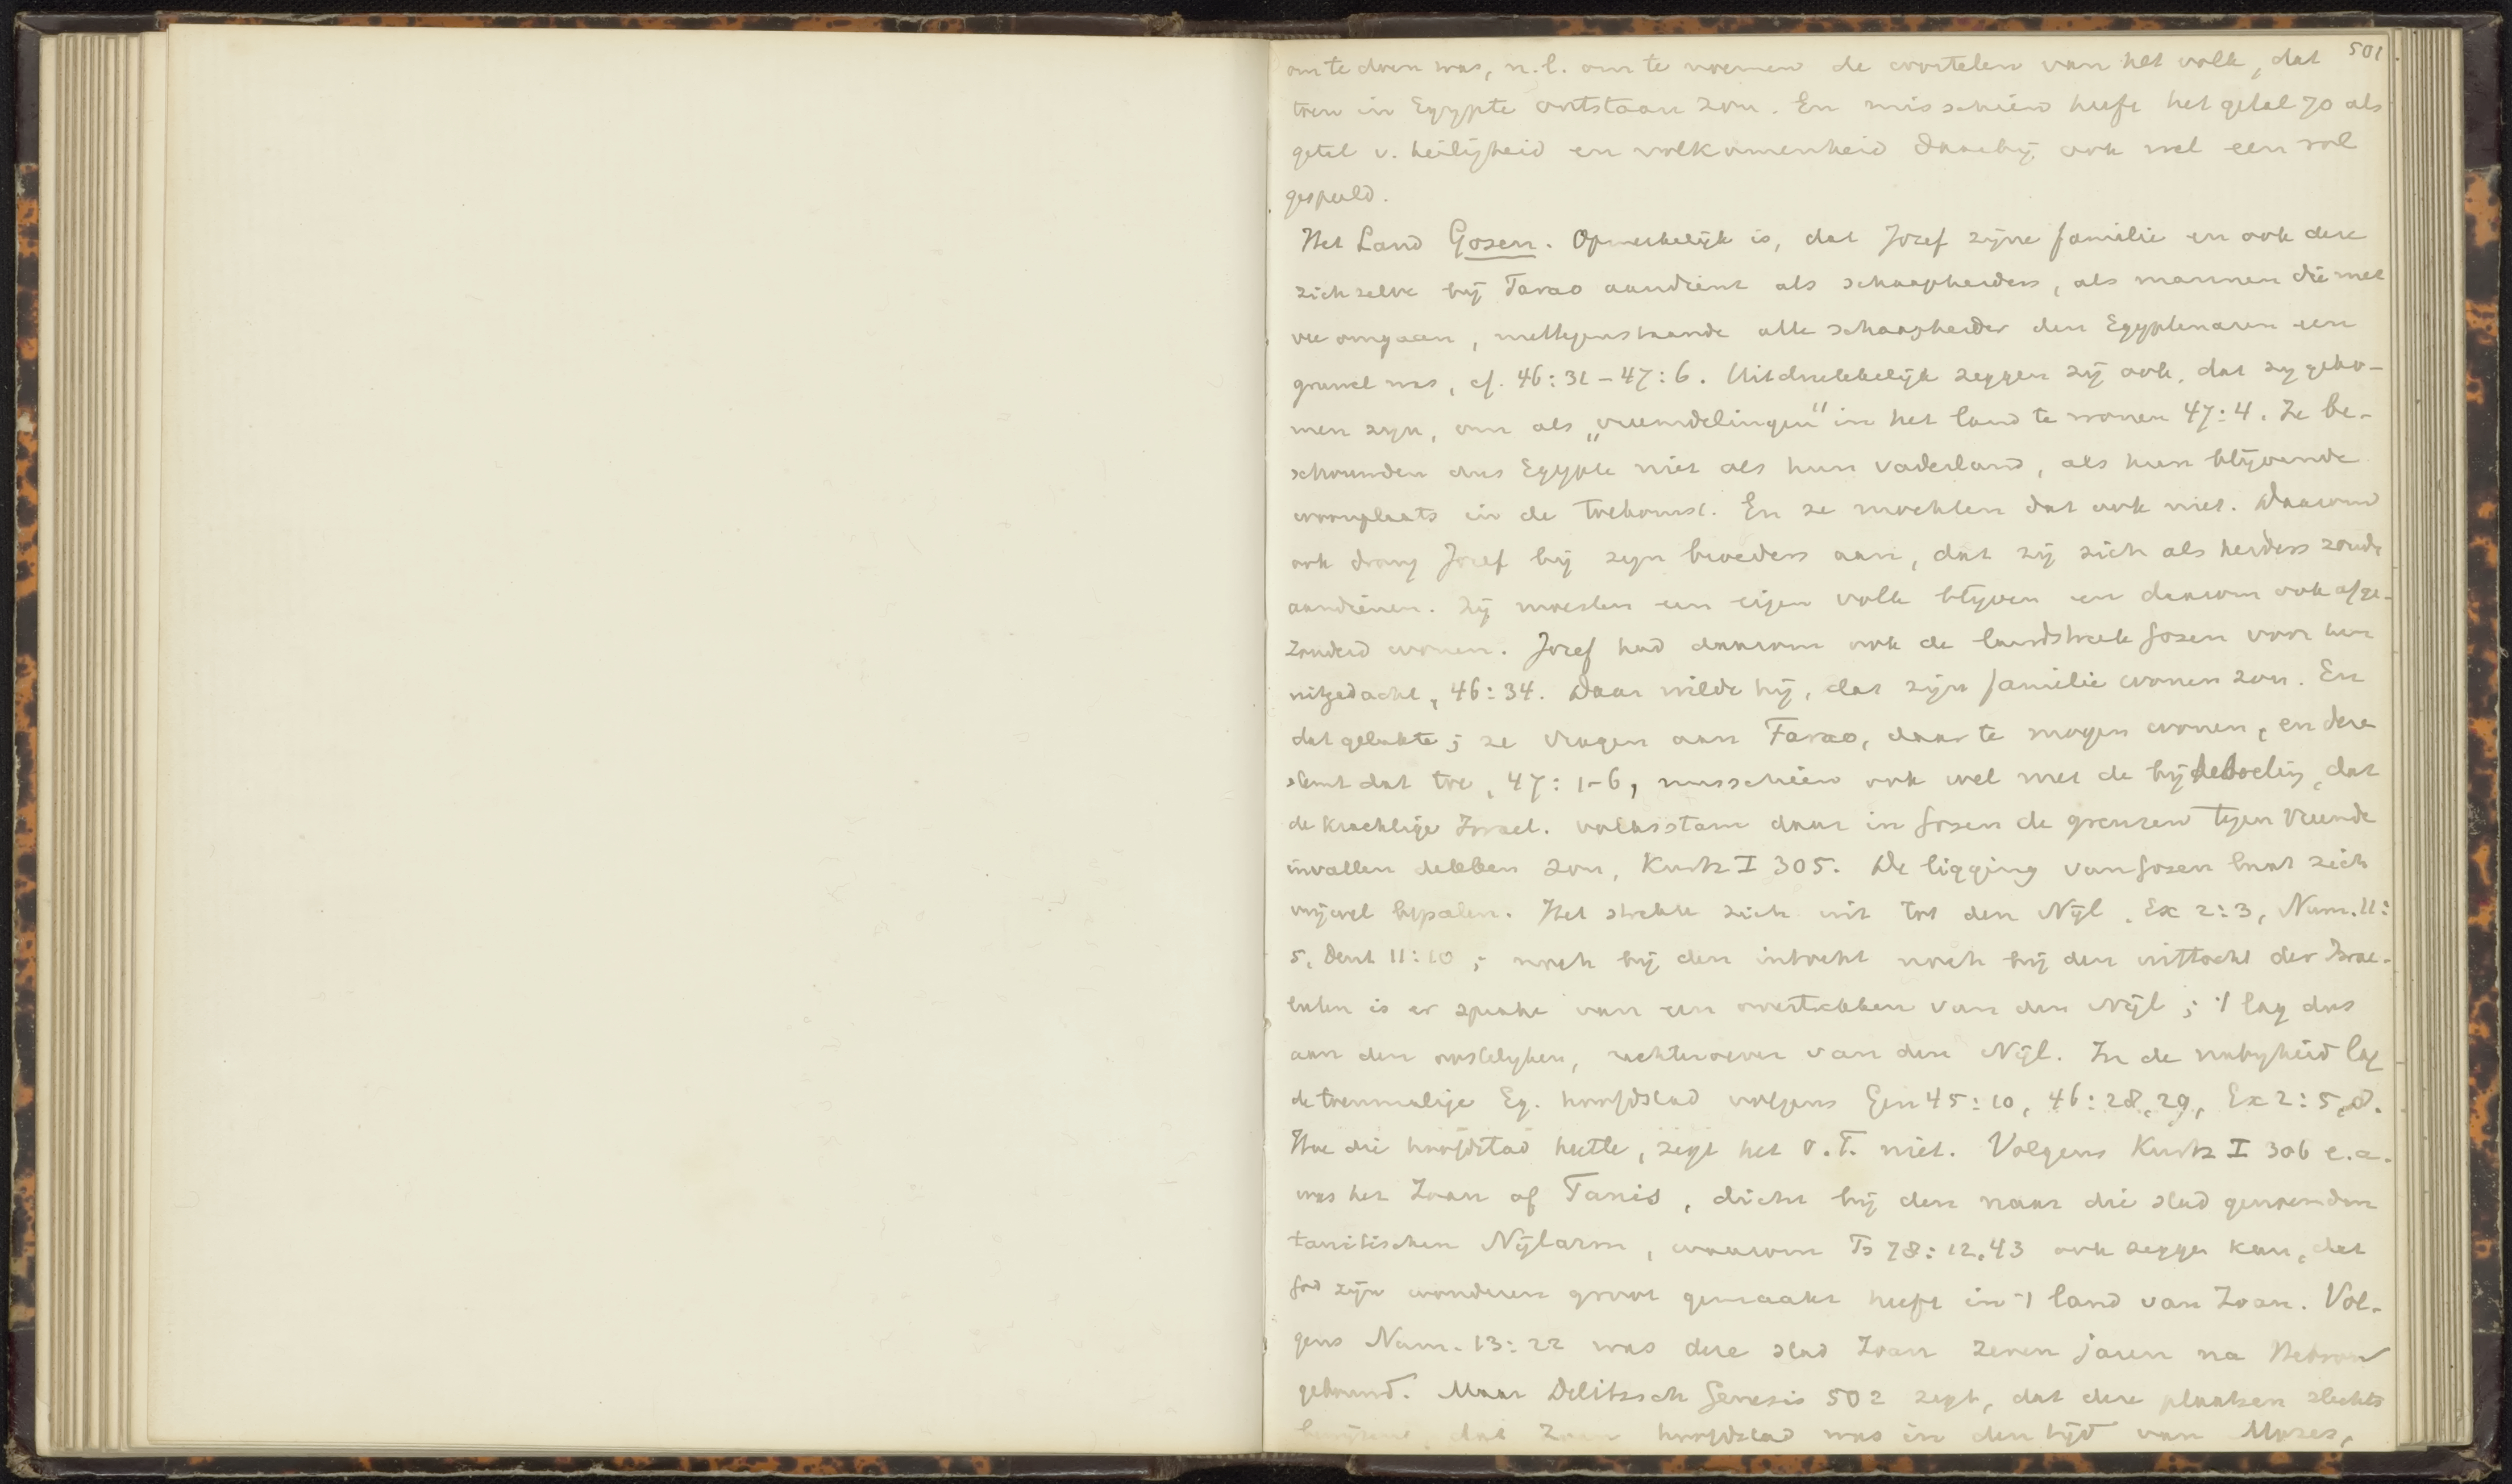 501.
om te doen was, n.l. om te noemen de wortelen van het volk, dat
toen in Egypte ontstaan zou. En misschien heeft het getal 70 als
getal v. heiligheid en volkomenheid daarbij ook wel een rol
gespeeld.
Het Land Gosen. Opmerkelijk is, dat Jozef zijne familie en ook deze
zichzelve bij Farao aandient als schaapherders, als mannen die met
vee omgaan, niettegenstaande alle schaapherder den Egyptenaren een
gruwel was, cf. 46:31-47:6. Uitdrukkelijk zeggen zij ook, dat zy geko-
men zyn, om als „vreemdelingen" in het land te wonen 47:4. Ze be-
schouwden dus Egypte niet als hun vaderland, als hun blijvende
woonplaats in de toekomst. En ze mochten dat ook niet. Daarom
ook drong Jozef bij zyn broeders aan, dat zij zich als herders zoude
aandienen. Zij moesten een eigen volk blyven en daarom ook afge-
zonderd wonen. Jozef had daarom ook de landstreek Gosen voor hen
uitgedacht, 46:34. Daar wilde hij, dat zijn familie wonen zou. En
dat gelukte; ze vragen aan Farao, daar te mogen wonen, en deze
stemt dat toe, 47:1-6, misschien ook wel met de bijbedoeling, dat
de krachtige Israel. volksstam daar in Gosen de grenzen tegen vreemde
invallen dekken zou, Kurtz I 305. De ligging van Gosen laat zich
vrijwel bepalen. Het strekte zich uit tot den Nijl, Ex 2:3, Num. 11:
5, Deut 11:10; noch bij den intocht noch bij den uittocht der Israe-
lieten is er sprake van een overtrekken van den Nijl; 't lag dus
aan den oostelyken, rechteroever van den Nijl. In de nabyheid lag
de toenmalige Eg. hoofdstad volgens Gen 45:10, 46:28,29, Ex 2:5,8.
Hoe die hoofdstad heette, zegt het O.T. niet. Volgens Kurtz I 306 e.a.
was het Zoan of Tanis, dicht bij den naar die stad genoemden
tanitischen Nijlarm, waarom Ps 78:12,43 ook zeggen kan, dat
God zijn wonderen groot gemaakt heeft in 't land van Zoan. Vol-
gens Num. 13:22 was deze stad Zoan zeven jaren na Hebron
gebouwd. Maar Delitzsch Genesis 502 zegt, dat deze plaatsen slechts
bewijzen, dat Zoan hoofdstad was in den tijd van Mozes,